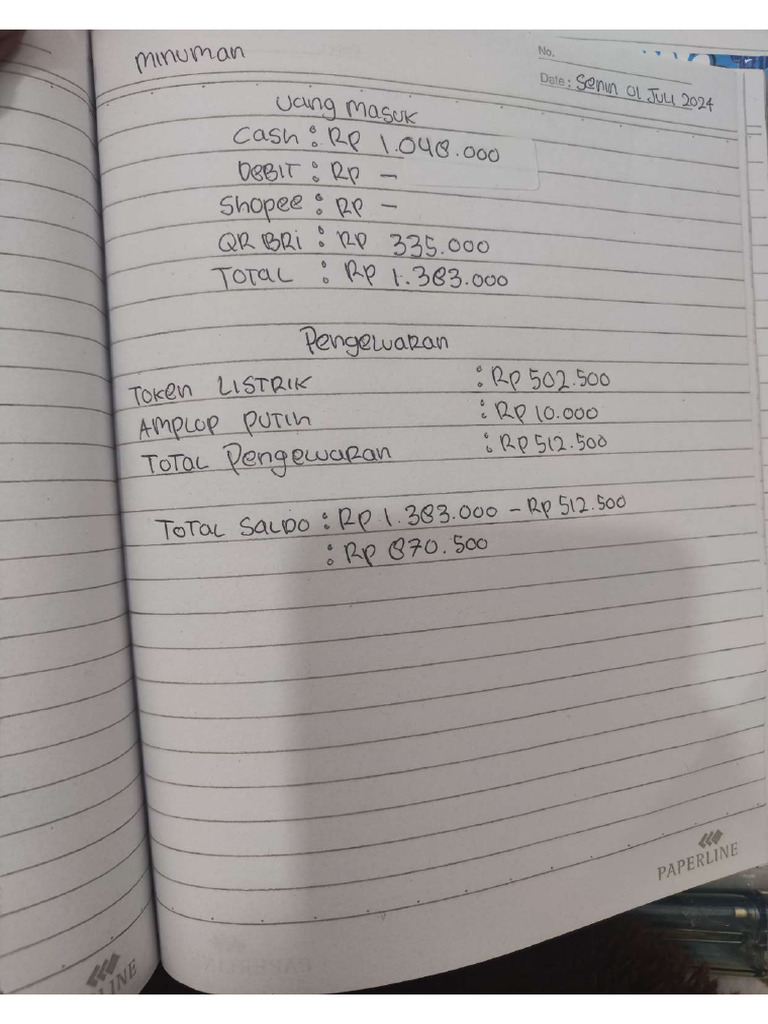 minuman
No.
Date: Senin 01 Juli 2024
Uang Masuk
Cash : Rp 1.048.000
Debit : Rp -
Shopee : Rp -
QR BRI : Rp 335.000
Total : Rp 1.383.000
Pengeluaran
Token Listrik : Rp 502.500
Amplop Putih : Rp 10.000
Total Pengeluaran : Rp 512.500
Total Saldo : Rp 1.383.000 - Rp 512.500
: Rp 870.500
PAPERLINE
LINE